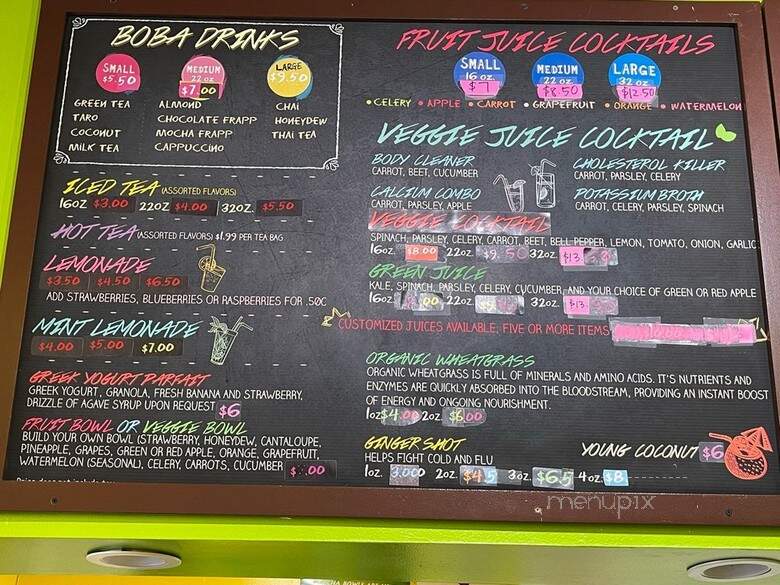 BOBA DRINKS
SMALL
$5.50
MEDIUM
22 oz.
$7.00
LARGE
$9.50
GREEN TEA
TARO
COCONUT
MILK TEA
ALMOND
CHOCOLATE FRAPP
MOCHA FRAPP
CAPPUCCINO
CHAI
HONEYDEW
THAI TEA
ICED TEA (ASSORTED FLAVORS)
16OZ $3.00 22OZ $4.00 32OZ. $5.50
HOT TEA (ASSORTED FLAVORS) $1.99 PER TEA BAG
LEMONADE
$3.50 $4.50 $6.50
ADD STRAWBERRIES, BLUEBERRIES OR RASPBERRIES FOR .50C
MINT LEMONADE
$4.00 $5.00 $7.00
GREEK YOGURT PARFAIT
GREEK YOGURT, GRANOLA, FRESH BANANA AND STRAWBERRY,
DRIZZLE OF AGAVE SYRUP UPON REQUEST $6
FRUIT BOWL OR VEGGIE BOWL
BUILD YOUR OWN BOWL (STRAWBERRY, HONEYDEW, CANTALOUPE,
PINEAPPLE, GRAPES, GREEN OR RED APPLE, ORANGE, GRAPEFRUIT,
WATERMELON (SEASONAL), CELERY, CARROTS, CUCUMBER
FRUIT JUICE COCKTAILS
SMALL
16 oz.
$7
MEDIUM
22 oz
$8.50
LARGE
32 oz
$12.50
• CELERY • APPLE • CARROT • GRAPEFRUIT • ORANGE • WATERMELON
VEGGIE JUICE COCKTAIL
BODY CLEANER
CARROT, BEET, CUCUMBER
CHOLESTEROL KILLER
CARROT, PARSLEY, CELERY
CALCIUM COMBO
CARROT, PARSLEY, APPLE
POTASSIUM BROTH
CARROT, CELERY, PARSLEY, SPINACH
VEGGIE COCKTAIL
SPINACH, PARSLEY, CELERY, CARROT, BEET, BELL PEPPER, LEMON, TOMATO, ONION, GARLIC
16oz. $8.00 22oz $9.50 32oz. $13
GREEN JUICE
KALE, SPINACH, PARSLEY, CELERY, CUCUMBER, AND YOUR CHOICE OF GREEN OR RED APPLE
16oz 22oz 32oz. $13
CUSTOMIZED JUICES AVAILABLE, FIVE OR MORE ITEMS
ORGANIC WHEATGRASS
ORGANIC WHEATGRASS IS FULL OF MINERALS AND AMINO ACIDS. IT'S NUTRIENTS AND
ENZYMES ARE QUICKLY ABSORBED INTO THE BLOODSTREAM, PROVIDING AN INSTANT BOOST
OF ENERGY AND ONGOING NOURISHMENT.
1oz $4.00 2oz $6.00
GINGER SHOT
HELPS FIGHT COLD AND FLU
1oz. 2oz. 3oz. $6.5 4oz. $8
YOUNG COCONUT $6
menupix